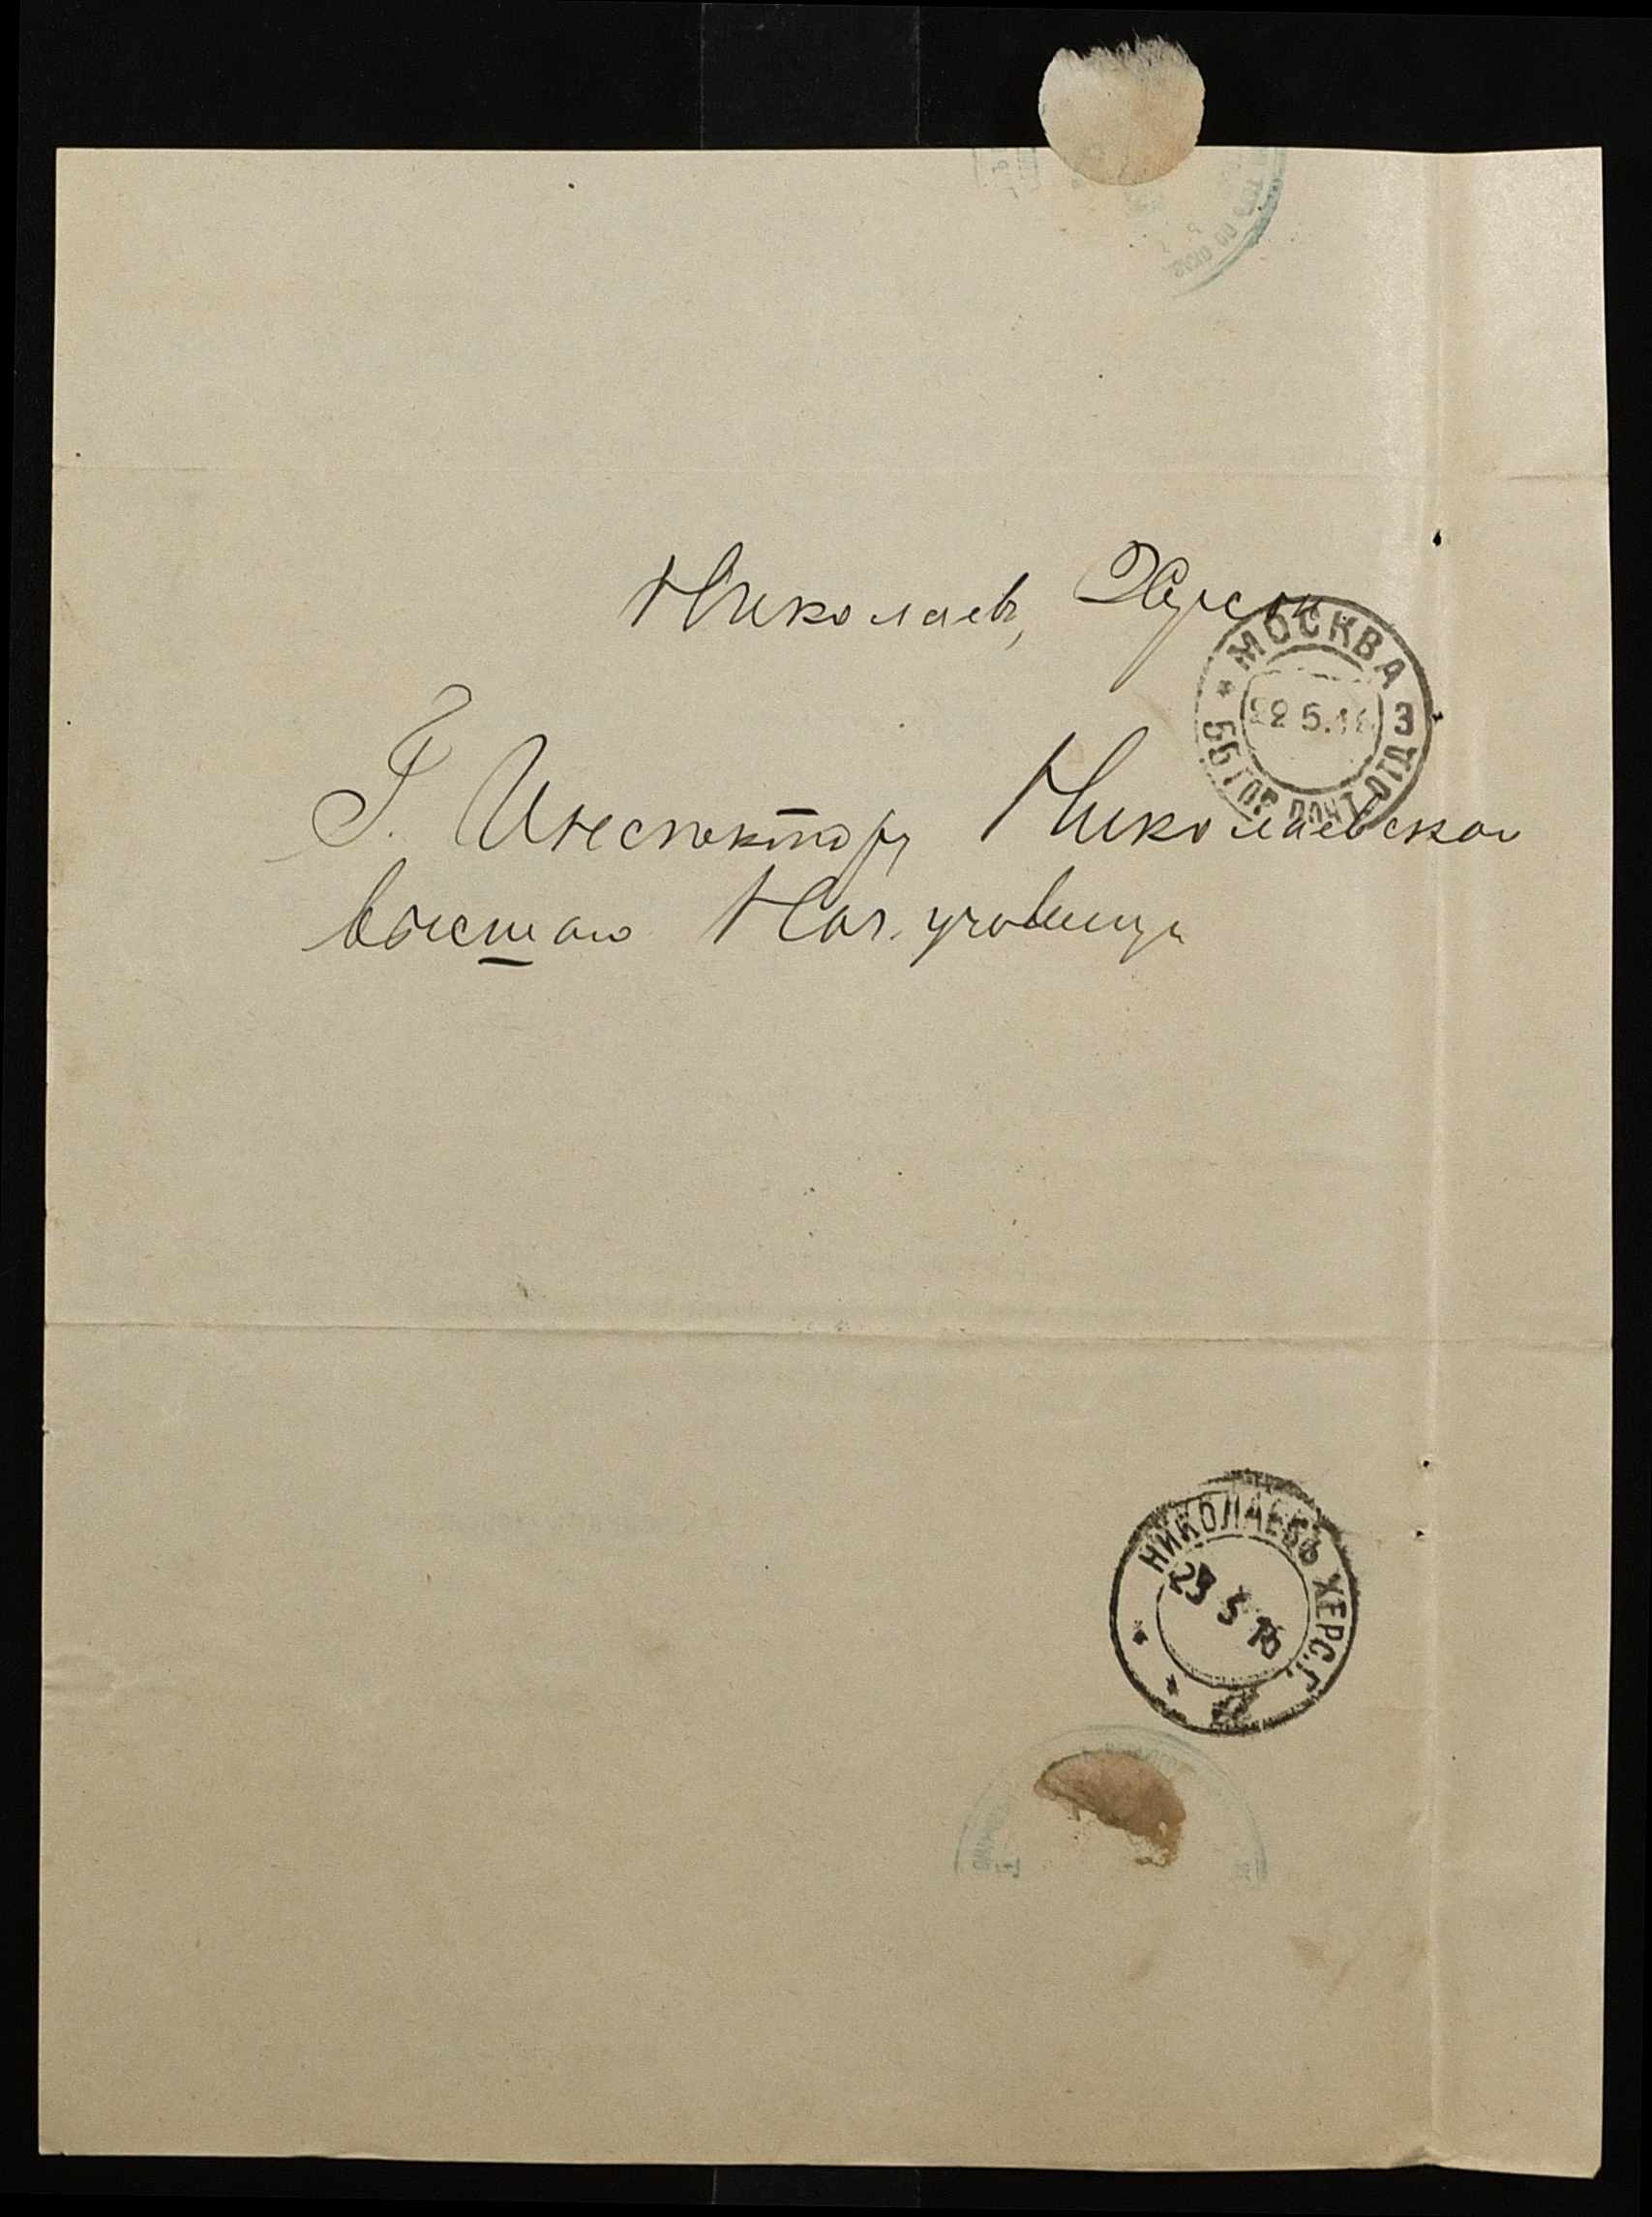 Николаевъ, Херсон
МОСКВА
22 5.16
55 ГОР. ПОЧТ. ОТД. 3
Г. Инспектору Николаевскаго
высшаго Нач. училища
НИКОЛАЕВЪ ХЕРС. Г.
23 5 16